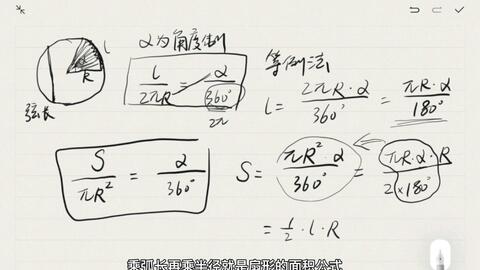 α为角度制
l
R
弦长
l/2πR = α/360°
2π
等例法
l = 2πR·α/360° = πR·α/180°
S/πR² = α/360°
S = πR²·α/360° = πR·α·R/2×180°
= 1/2·l·R
乘弧长再乘半径就是扇形的面积公式